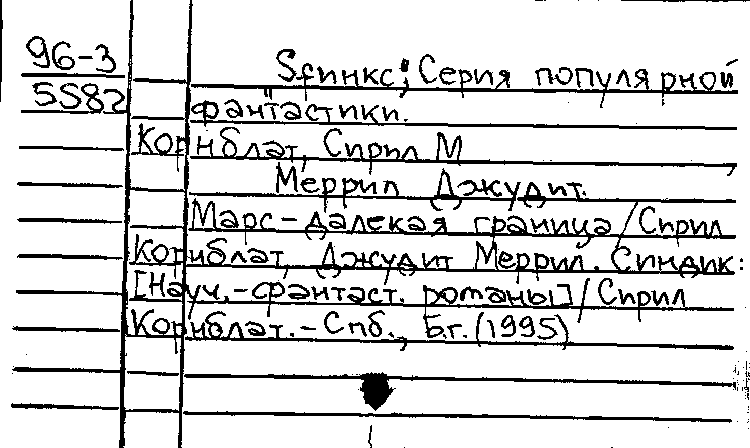 96-3
5582
Sfинкс; Серия популярной
фантастики.
Корнблат, Сирил М
Меррил Джудит.
Марс-далекая граница/Сирил
Корнблат, Джудит Меррил. Синдик:
[Науч.-фантаст. романы]/Сирил
Корнблат.-Спб., Б.г.(1995)